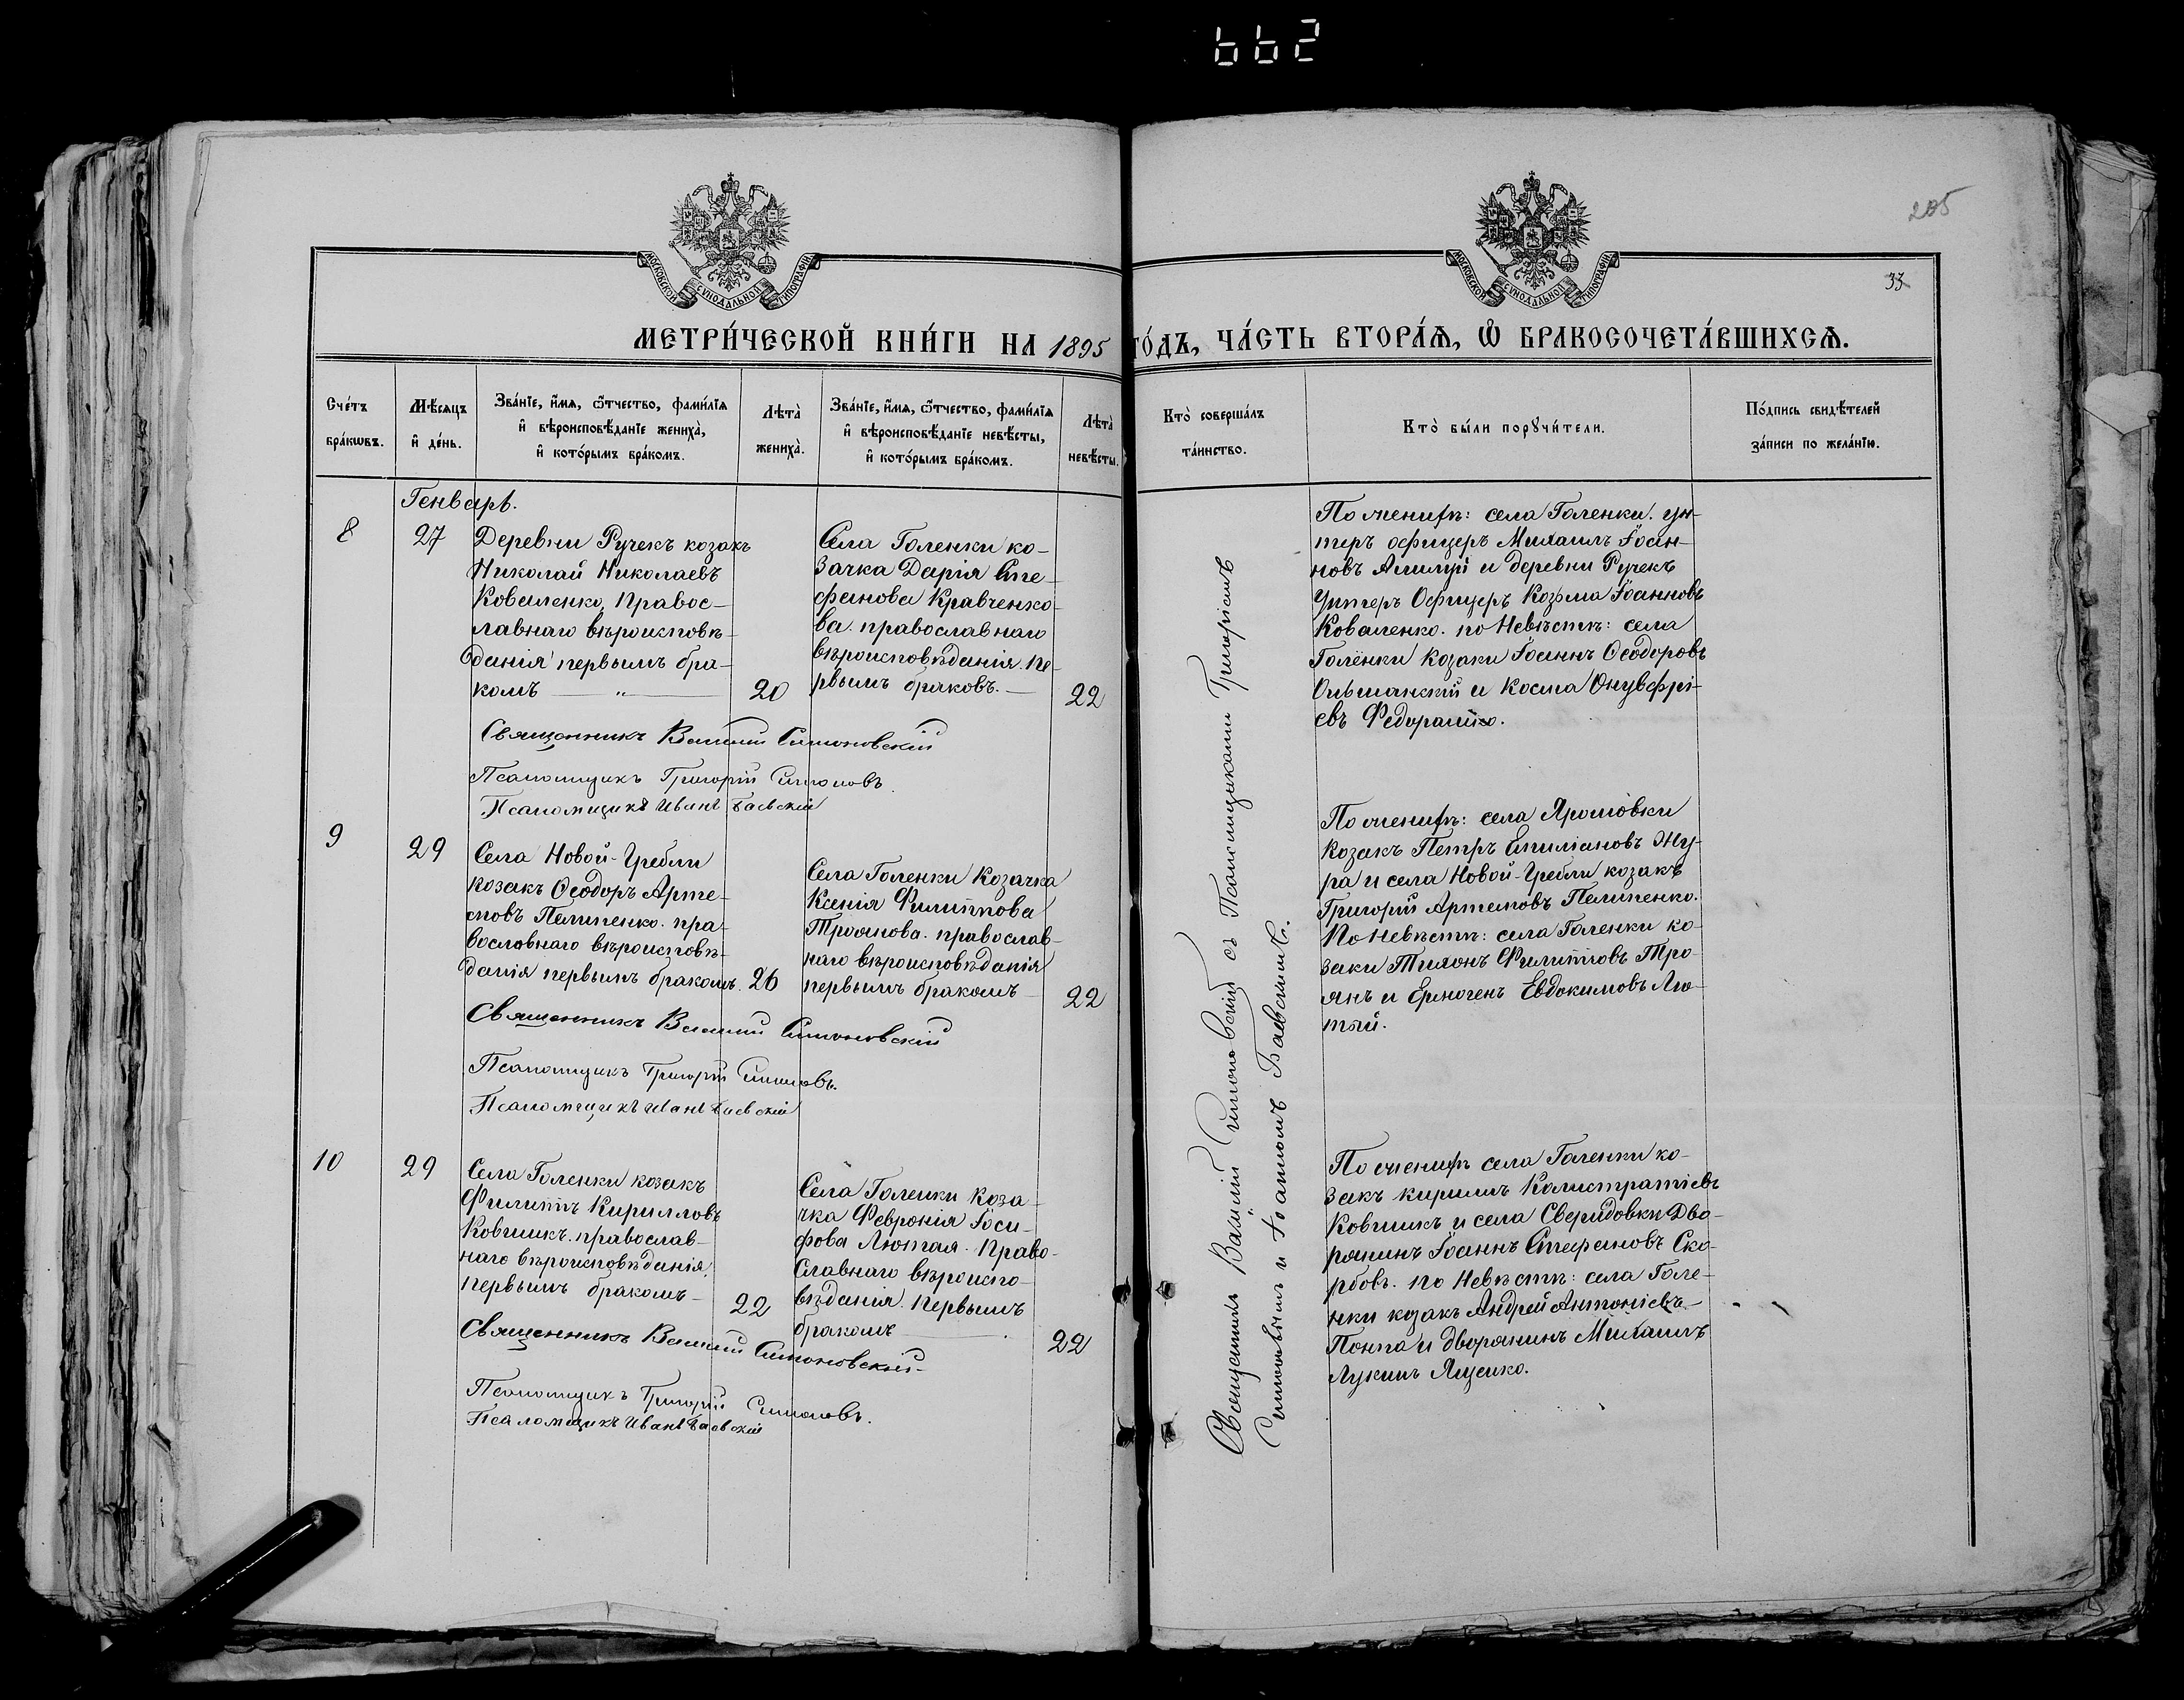 662
205
33
МОСКОВСКОЙ СѴНОДАЛЬНОЙ ТИПОГРАФІИ
МОСКОВСКОЙ СѴНОДАЛЬНОЙ ТИПОГРАФІИ
МЕТРИ́ЧЕСКОЙ КНИ́ГИ НА 1895 ГО́ДЪ, ЧА́СТЬ ВТОРА́Ѧ, Ѽ БРАКОСОЧЕТА́ВШИХСѦ.
Сче́тъ бра́кѡвъ.
Мѣ́сѧцъ и҆ де́нь.
Зва́нїе, и҆́мѧ, ѻ҆́тчество, фами́лїѧ
и҆ вѣроисповѣ́данїе жениха̀,
и҆ кото́рымъ бра́комъ.
Лѣта̀ жениха̀.
Зва́нїе, и҆́мѧ, ѻ҆́тчество, фами́лїѧ
и҆ вѣроисповѣ́данїе невѣ́сты,
и҆ кото́рымъ бра́комъ.
Лѣта̀ невѣ́сты.
Кто̀ соверша́лъ та́инство.
Кто̀ бы́ли порꙋчи́тели.
По́дпись свидѣ́телей
за́писи по жела́нїю.
Генварь.
8
27
Деревни Ручекъ козакъ
Николай Николаевъ
Коваленко, Правос-
лавнаго вѣроисповѣ-
данія первымъ бра-
комъ — „ —
20
Села Голенки ко-
зачка Дарія Сте-
фанова Кравченко-
ва. православнаго
вѣроисповѣданія. пе-
рвымъ браковъ. —
22
По женихѣ: села Голенки. ун-
теръ офицеръ Михаилъ Іоан-
новъ и деревни Ручекъ
Унтеръ Офицеръ Козьма Іоанновъ
Коваленко. по Невѣстѣ: села
Голенки Козаки Іоаннъ Ѳеодоровъ
Ольшанскій и Косма Онуфрі-
евъ
Священникъ Василій Симоновскій
Псаломщикъ Григорій Симоновъ.
Псаломщикъ Иванъ Баевскій
9
29
Села Новой-Гребли
козакъ Ѳеодоръ Арте-
мовъ Пелипенко. пра-
вославнаго вѣроисповѣ-
данія первымъ бракомъ.
26
Села Голенки Козачка
Ксенія Филиппова
Троянова. православ-
наго вѣроисповѣданія
первымъ бракомъ —
22
По женихѣ: села Ярошовки
Козакъ Петръ Емиліановъ Жу-
ра и села Новой-Гребли козакъ
Григорій Артемовъ Пелипенко.
По Невѣстѣ: села Голенки ко-
заки Тихонъ Филиповъ Тро-
янъ и Ермогенъ Евдокимовъ Лю-
тый.
Священникъ Василій Симоновскій
Псаломщикъ Григорій Симоновъ.
Псаломщикъ Иванъ Баевскій
10
29
Села Голенки козакъ
Филиппъ Кирилловъ
Ковшикъ. православ-
наго вѣроисповѣданія.
первымъ бракомъ —
22
Села Голенки Коза-
чка Февронія Іоси-
фова Лютая. Право-
славнаго вѣроиспо-
вѣданія. первымъ
бракомъ —
22
По женихѣ села Голенки ко-
закъ Кирилъ Калистратіевъ
Ковшикъ и села Сверидовки Дво-
рянинъ Іоаннъ Стефановъ Ско-
рбовъ. по Невѣстѣ: села Голе-
нки козакъ Андрей Антоніевъ
Понпа и дворянинъ Михаилъ
Лукинъ Яценко.
Священникъ Василій Симоновскій
Псаломщикъ Григорій Симоновъ.
Псаломщикъ Иванъ Баевскій
Священникъ Василій Симоновскій съ Псаломщиками Григоріемъ
Симоновымъ и Іоанномъ Баевскимъ.